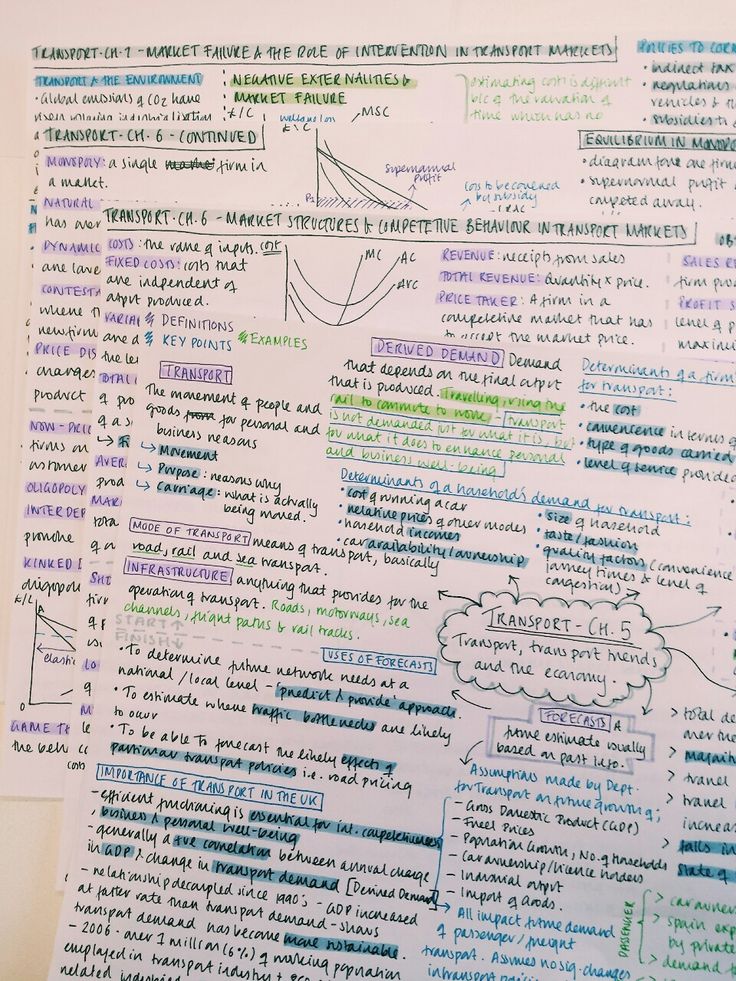 TRANSPORT·CH.7 - MARKET FAILURE & THE ROLE OF INTERVENTION IN TRANSPORT MARKETS
TRANSPORT & THE ENVIRONMENT
• Global emissions of CO2 have
NEGATIVE EXTERNALITIES &
MARKET FAILURE
£/C
MSC
estimating costs is difficult
b/c of the valuation of
time which has no
POLICIES TO
• indirect tax
• regulations
vehicles &
• subsidies to
TRANSPORT·CH. 6 - CONTINUED
MONOPOLY: a single firm in
a market.
NATURAL
has over
DYNAMIC
are
CONTEST
where
new firm
PRICE DIS
changes
product
NON-PRIC
firms
customer
OLIGOPOLY
INTERDEP
promote
KINKED D
oligopol
£/C
elastic
0
GAME TH
the behav
costs
£/C
supernormal
profit
P1
costs to be covered
by subsidy
LRAC
EQUILIBRIUM IN MONOPO
• diagram for one firm
• supernormal profit
competed away.
TRANSPORT·CH.6 - MARKET STRUCTURES & COMPETETIVE BEHAVIOUR IN TRANSPORT MARKETS
COSTS: the value of inputs. cost
FIXED COSTS: costs that
are independent of
output produced.
VARIA
are d
the le
TOTAL
of pro
of a s
AVER
prod
MAR
tota
of a
MC
AC
AVC
REVENUE: receipts from sales
TOTAL REVENUE: Quantity x price.
PRICE TAKER: A firm in a
competetive market that has
to accept the market price.
SALES R
firm prod
PROFIT S
level of p
maximi
DEFINITIONS
KEY POINTS
EXAMPLES
TRANSPORT
The movement of people and
goods from for personal and
business reasons
↳ Movement
↳ Purpose: reasons why
↳ Carriage: what is actually
being moved.
DERIVED DEMAND Demand
that depends on the final output
that is produced. Travelling using the
rail to commute to work - transport
is not demanded just for what it is, but
for what it does to enhance personal
and business well-being
Determinants of a firm'
for transport:
• the cost
• convenience in terms of
• type of goods carried
• level of service provided
Determinants of a household's demand for transport:
• cost of running a car
• relative prices of other modes
• household incomes
• car availability/ownership
• size of household
• taste/fashion
• quality factors (convenience
journey times & level of
congestion)
MODE OF TRANSPORT means of transport, basically
road, rail and sea transport.
INFRASTRUCTURE anything that provides for the
operation of transport. Roads, motorways, sea
channels, flight paths & rail tracks.
START ↑
FINISH ↓
TRANSPORT - CH. 5
Transport, transport trends
and the economy.
USES OF FORECASTS
• To determine future network needs at a
national/local level - 'predict & provide' approach.
• To estimate where traffic bottlenecks are likely
to occur
• To be able to forecast the likely effects of
particular transport policies i.e. road pricing
FORECASTS A
future estimate usually
based on past info.
Assumptions made by Dept.
for Transport on future growth of;
- Gross Domestic Product (GDP)
- Fuel Prices
- Population Growth, No. of Households
- Car ownership/licence holders
- Industrial output
- Import of Goods.
All impact future demand
of passenger/freight
transport. Assumes no sig. changes
in transport
> total de
over the
> magnit
> travel
> travel
increas
> falls in
state of
PASSENGER
> car owners
> spain exp
by private
> demand f
IMPORTANCE OF TRANSPORT IN THE UK
- efficient functioning is essential for int. competetiveness
, business & personal well-being
- generally a +ve correlation between annual change
in GDP & change in transport demand [Derived Demand]
- relationship decoupled since 1990's - GDP increased
at faster rate than transport demand - shows
transport demand has become more sustainable.
- 2006 - over 1 million (6%) of working population
employed in transport industry +
related industries